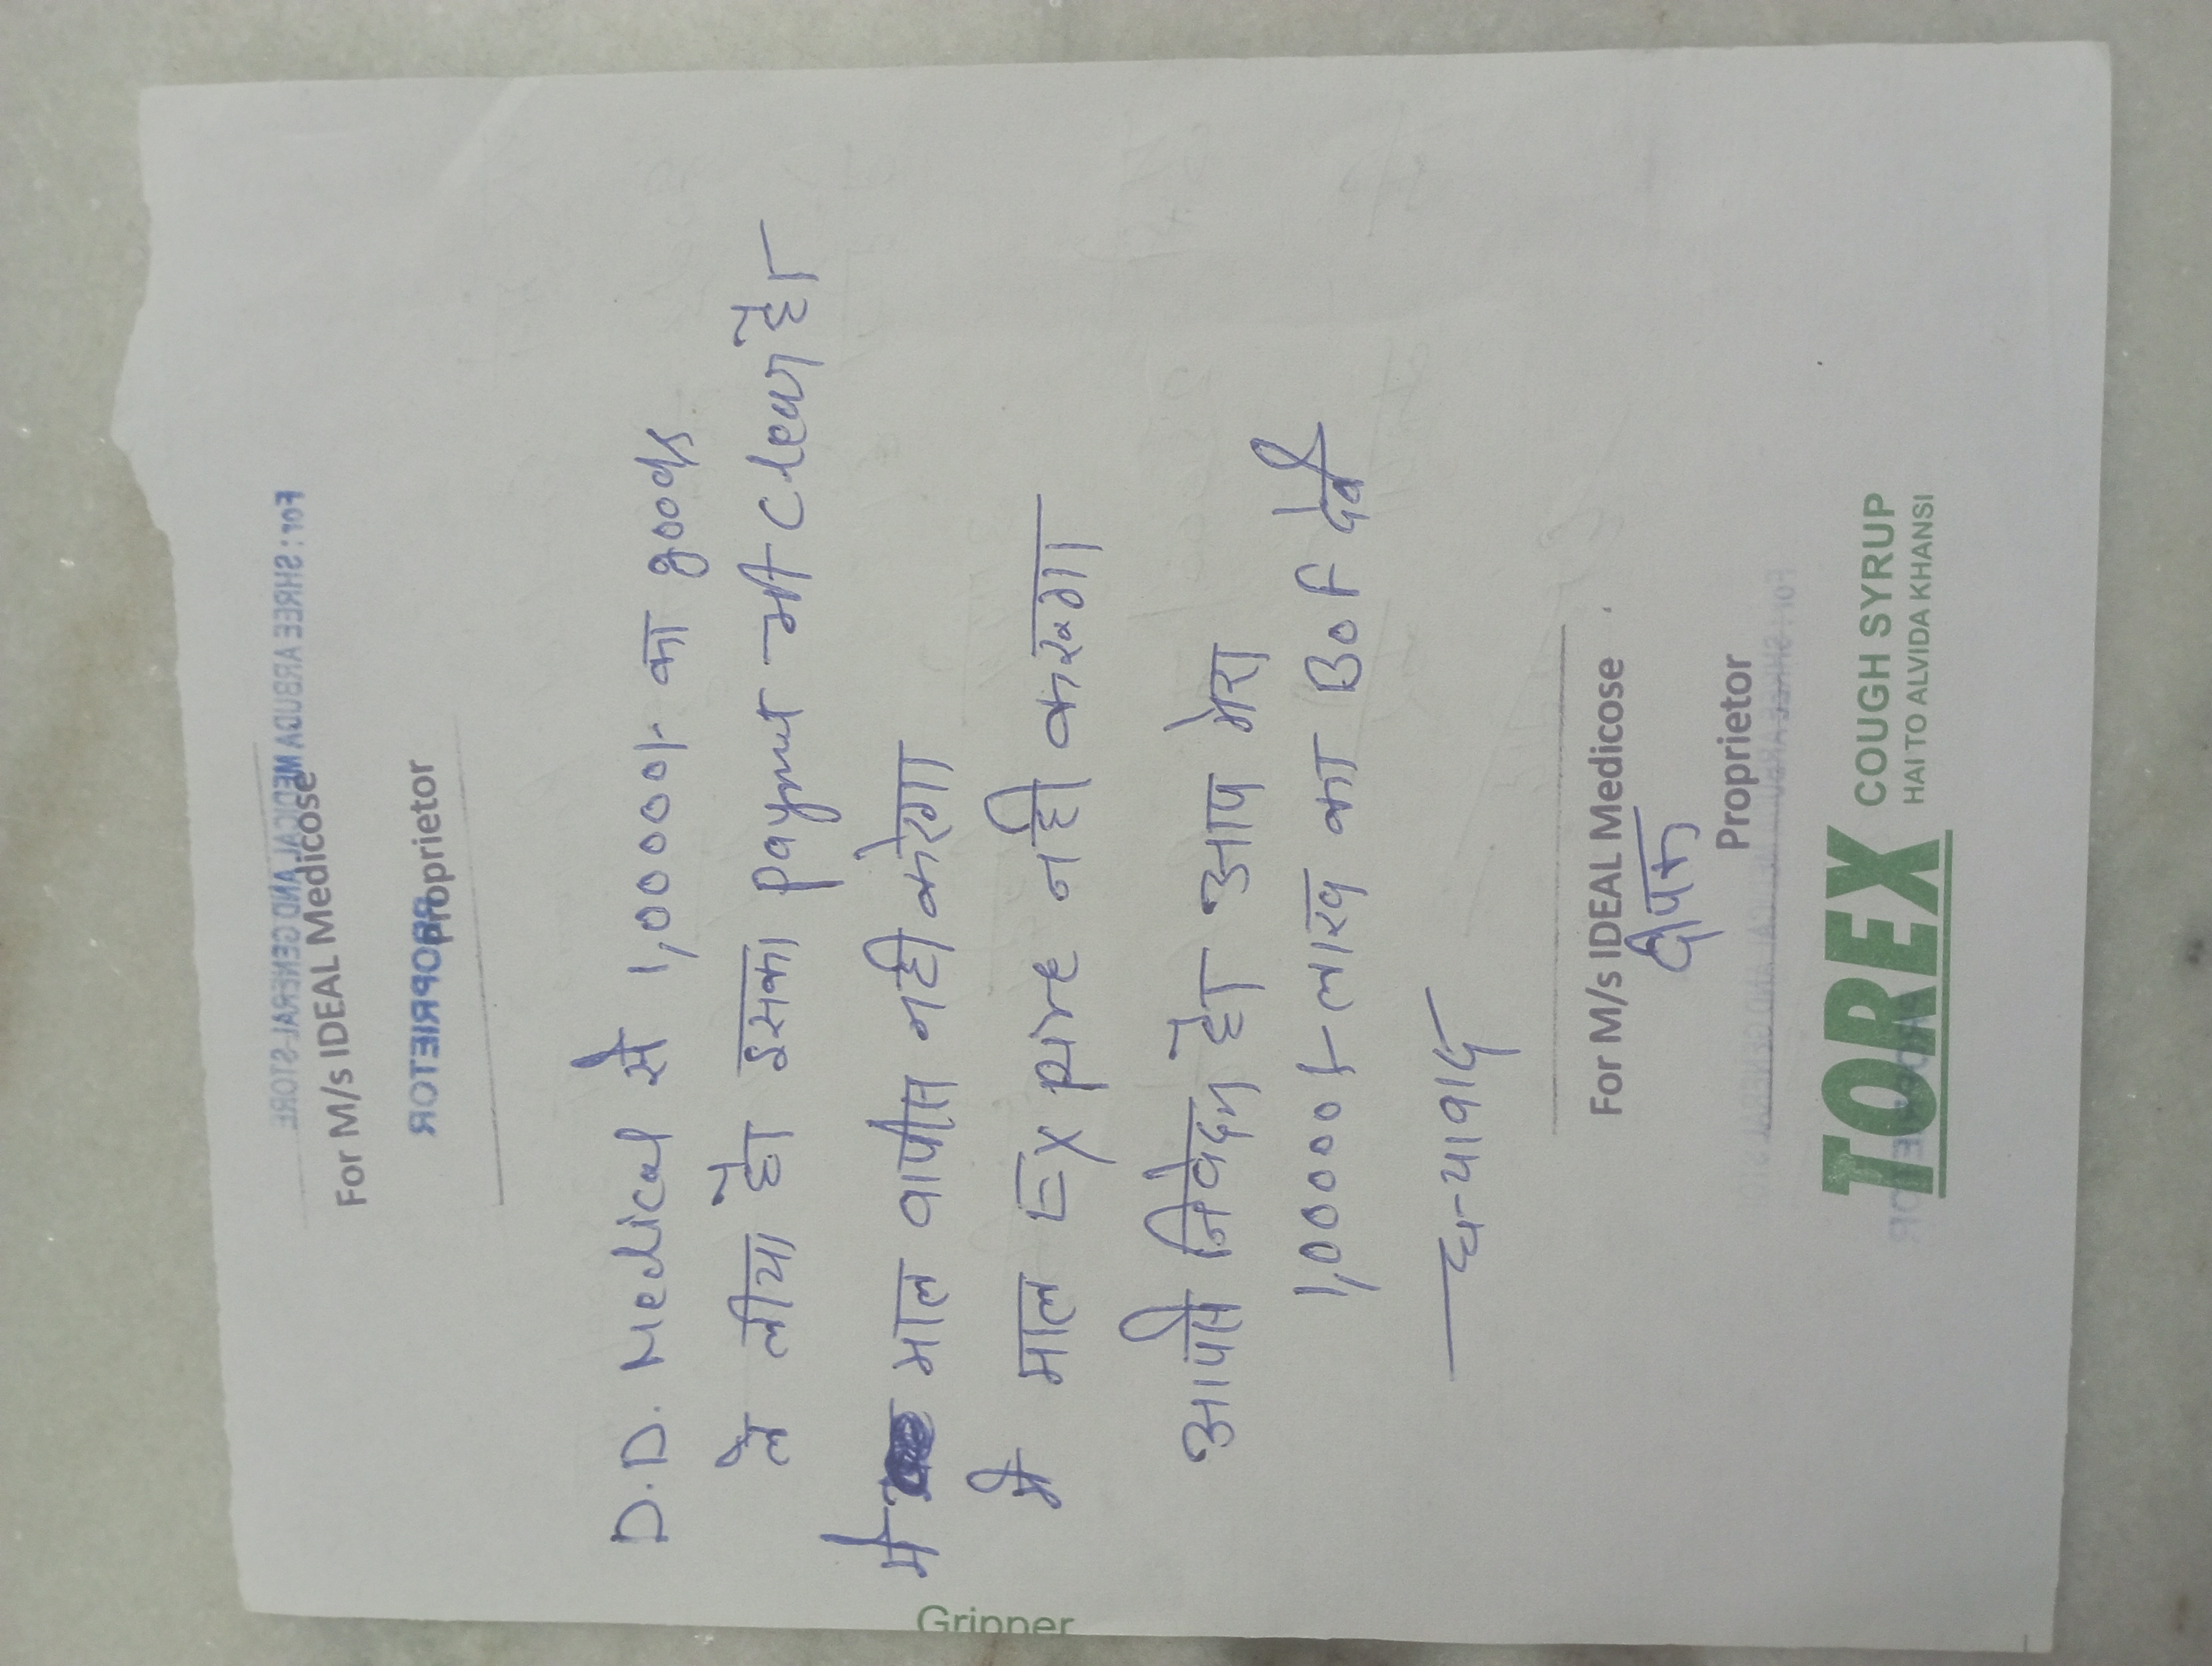 For : SHREE ARBUDA MEDICAL AND GENERAL STORE
For M/s IDEAL Medicose
PROPRIETOR
Proprietor
D.D. Medical से 1,00000/- का goods
ले लीया है। इसका Payment भी Clear है।
मै माल वापीस नही करेगा
मै माल Expire नही करूगा
आपसे निवेदन है। आप मेरा
1,00000/- लाख का BOF देवे
धन्यावाद
For M/s IDEAL Medicose
दीपक
Proprietor
TOREX COUGH SYRUP
HAI TO ALVIDA KHANSI
Gripper